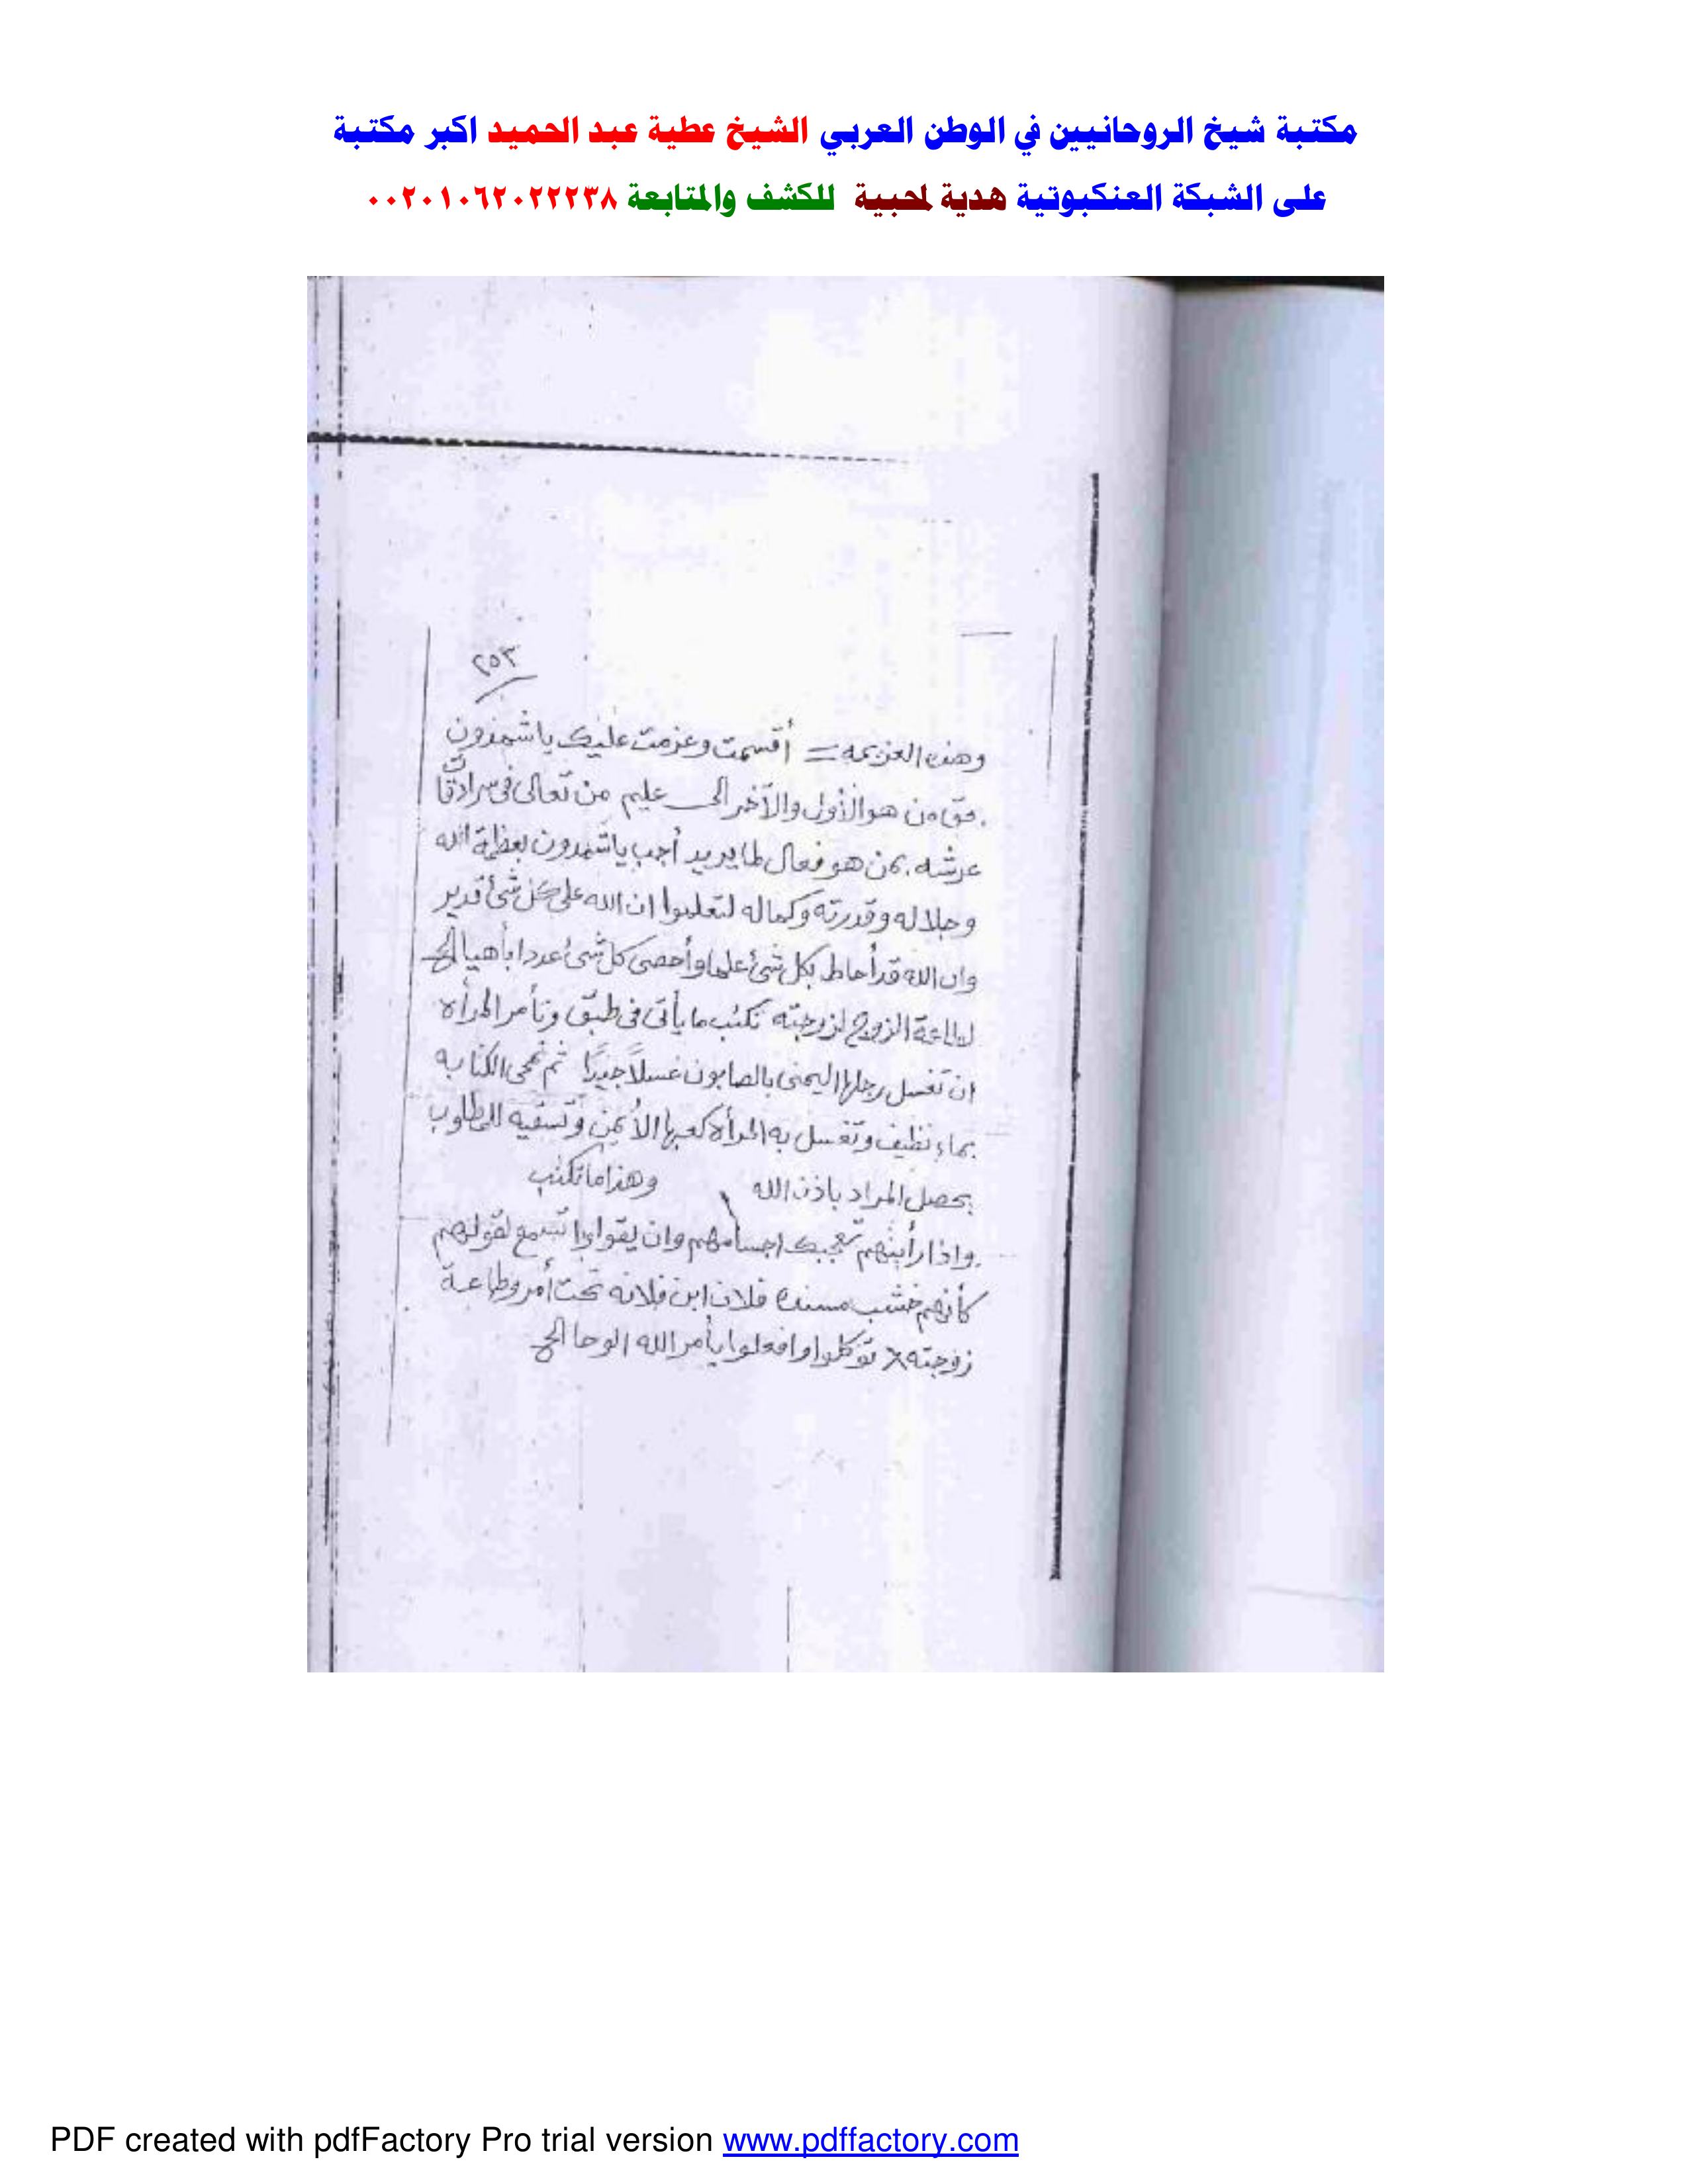 مكتبة شيخ الروحانيين في الوطن العربي الشيخ عطية عبد الحميد اكبر مكتبة
على الشبكة العنكبوتية هدية لمحبية للكشف والمتابعة ٠٠٢٠١٠٦٢٠٢٢٢٣٨
٢٥٣
وهذه العزيمه = أقسمت وعزمت عليك ياشمذون
بحق من هو الأول والآخر الى عليم من تعالى فى سرادقات
عرشه بمن هو فعال لما يريد أجب ياشمذون بعظمة الله
وجلاله وقدرته وكماله لتعلموا ان الله على كل شئ قدير
وان الله قد أحاط بكل شئ علما وأحصى كل شئ عددا بأهيا الخ
لطاعة الزوج لزوجته تكتب ما يأتى فى طبق وتأمر المرأه
ان تغسل رجلها اليمنى بالصابون غسلاً جيداً ثم تمحى الكتابه
بماء نظيف وتغسل به المرأه كعبها الأيمن وتسقيه للمطلوب
يحصل المراد باذن الله وهذا ما تكتب
واذا رأيتهم تعجبك اجسامهم وان يقولوا تسمع لقولهم
كأنهم خشب مسنده فلان ابن فلانه تحت أمر وطاعة
زوجته توكلوا وافعلوا بأمر الله الوحا الخ
PDF created with pdfFactory Pro trial version www.pdffactory.com